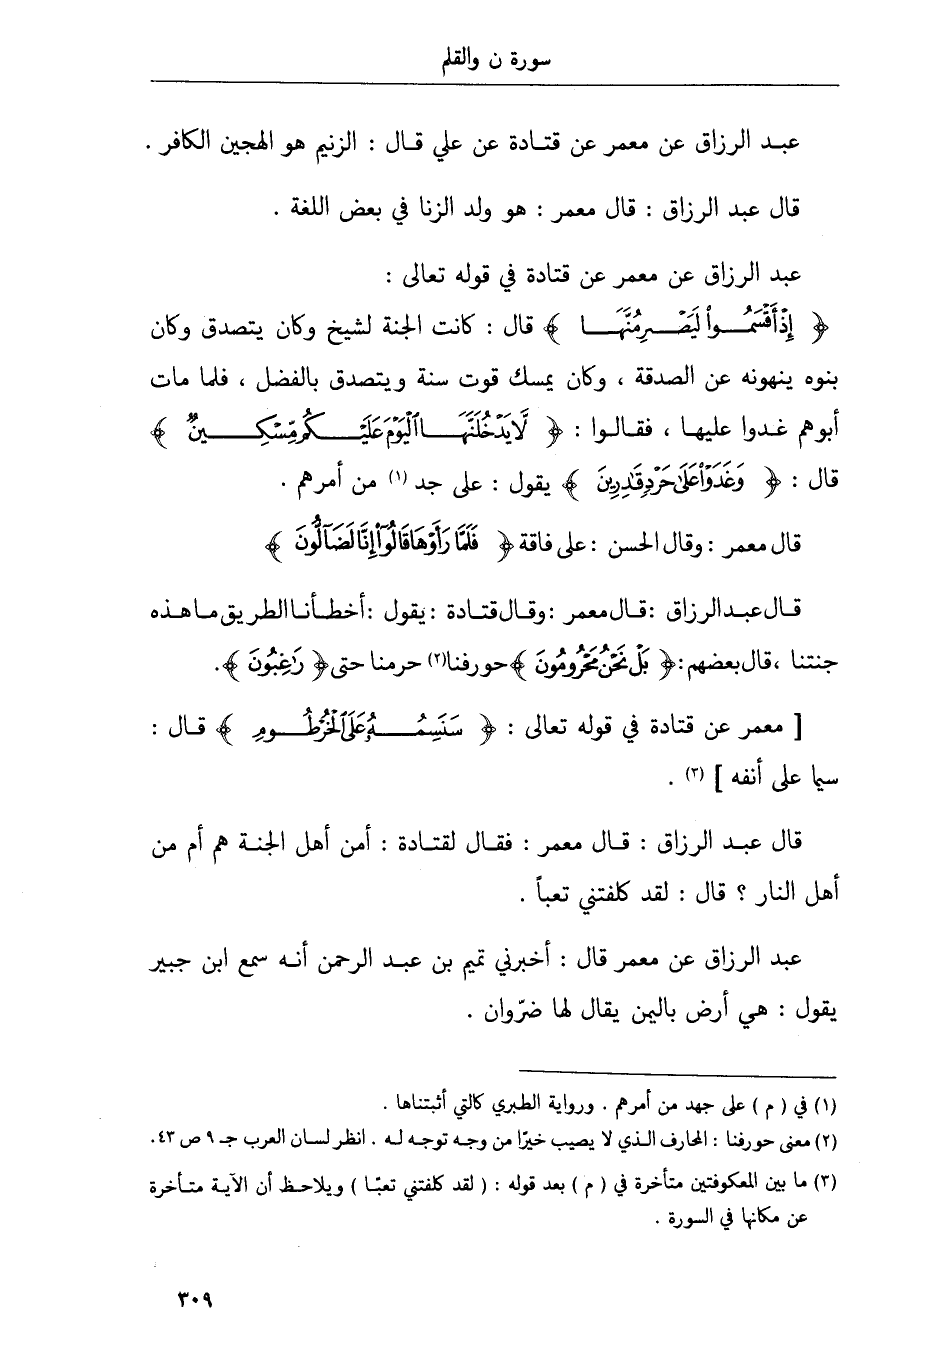 سورة ن والقلم
عبد الرزاق عن معمر عن قتادة عن علي قال : الزنيم هو الهجين الكافر .
قال عبد الرزاق : قال معمر : هو ولد الزنا في بعض اللغة .
عبد الرزاق عن معمر عن قتادة في قوله تعالى :
﴿ إِذْ أَقْسَمُوا۟ لَيَصْرِمُنَّهَا ﴾ قال : كانت الجنة لشيخ وكان يتصدق وكان
بنوه ينهونه عن الصدقة ، وكان يمسك قوت سنة ويتصدق بالفضل ، فلما مات
أبوهم غدوا عليها ، فقالوا : ﴿ لَّا يَدْخُلَنَّهَا ٱلْيَوْمَ عَلَيْكُم مِّسْكِينٌ ﴾
قال : ﴿ وَغَدَوْا۟ عَلَىٰ حَرْدٍ قَٰدِرِينَ ﴾ يقول : على جد (١) من أمرهم .
قال معمر : وقال الحسن : على فاقة ﴿ فَلَمَّا رَأَوْهَا قَالُوٓا۟ إِنَّا لَضَآلُّونَ ﴾
قال عبد الرزاق : قال معمر : وقال قتادة : يقول : أخطأنا الطريق ما هذه
جنتنا ، قال بعضهم : ﴿ بَلْ نَحْنُ مَحْرُومُونَ ﴾ حورفنا (٢) حرمنا حتى ﴿ رَٰغِبُونَ ﴾ .
[ معمر عن قتادة في قوله تعالى : ﴿ سَنَسِمُهُۥ عَلَى ٱلْخُرْطُومِ ﴾ قال :
سيما على أنفه ] (٣) .
قال عبد الرزاق : قال معمر : فقال لقتادة : أمن أهل الجنة هم أم من
أهل النار ؟ قال : لقد كلفتني تعباً .
عبد الرزاق عن معمر قال : أخبرني تميم بن عبد الرحمن أنه سمع ابن جبير
يقول : هي أرض باليمن يقال لها ضرّوان .
(١) في ( م ) على جهد من أمرهم . ورواية الطبري كالتي أثبتناها .
(٢) معنى حورفنا : المحارف الذي لا يصيب خيرًا من وجه توجه له . انظر لسان العرب جـ ٩ ص ٤٣ .
(٣) ما بين المعكوفتين متأخرة في ( م ) بعد قوله : ( لقد كلفتني تعبًا ) ويلاحظ أن الآية متأخرة
عن مكانها في السورة .
٣٠٩